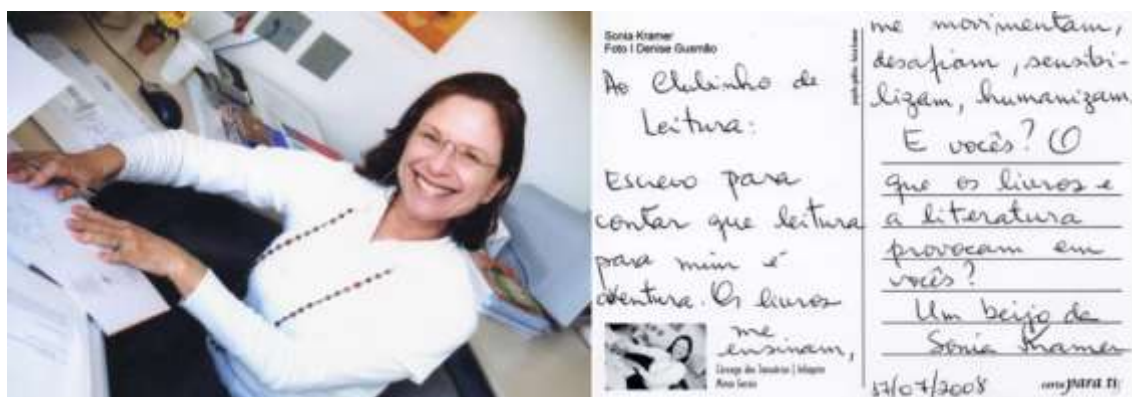 Sonia Kramer
Foto | Denise Gusmão
Ao Clubinho de
Leitura:
Escrevo para
contar que leitura
para mim é
aventura. Os livros
me
ensinam,
me movimentam,
desafiam, sensibi-
lizam, humanizam.
E vocês? O
que os livros e
a literatura
provocam em
vocês?
Um beijo da
Sonia Kramer
17/07/2008
para ti